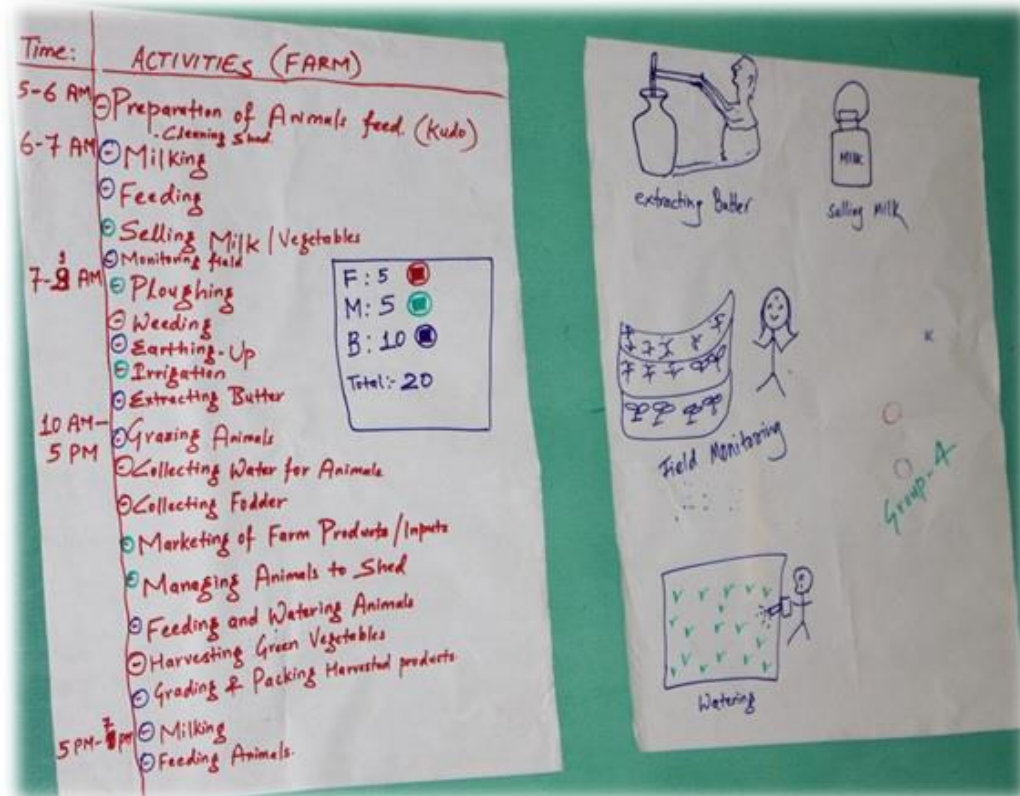 Time: ACTIVITIES (FARM)
5-6 AM Preparation of Animals feed. (Kudo)
- Cleaning Shed
6-7 AM Milking
Feeding
Selling Milk / Vegetables
Monitoring field
7-9 AM Ploughing
Weeding
Earthing-Up
Irrigation
Extracting Butter
10 AM-
5 PM Grazing Animals
Collecting Water for Animals
Collecting Fodder
Marketing of Farm Products/Inputs
Managing Animals to Shed
Feeding and Watering Animals
Harvesting Green Vegetables
Grading & Packing Harvested products
5 PM-7 PM Milking
Feeding Animals.
F: 5
M: 5
B: 10
Total:- 20
extracting Butter
MILK
Selling Milk
Field Monitoring
Group-A
Watering